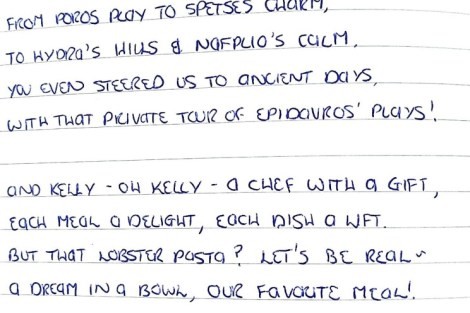 FROM POROS PLAY TO SPETSES CHARM,
TO HYDRA'S HILLS & NAFPLIO'S CALM,
YOU EVEN STEERED US TO ANCIENT DAYS,
WITH THAT PRIVATE TOUR OF EPIDAVROS' PLAYS!
AND KELLY - OH KELLY - A CHEF WITH A GIFT,
EACH MEAL A DELIGHT, EACH DISH A LIFT.
BUT THAT LOBSTER PASTA? LET'S BE REAL~
A DREAM IN A BOWL, OUR FAVORITE MEAL!